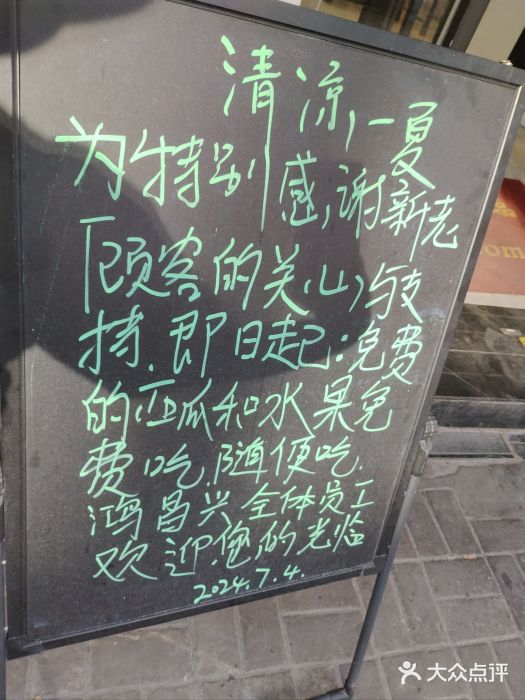 清凉一夏
为特别感谢新老
顾客的关心与支
持.即日起:免费
的西瓜和水果免
费吃.随便吃.
鸿昌兴全体员工
欢迎您的光临
2024.7.4.
com
大众点评